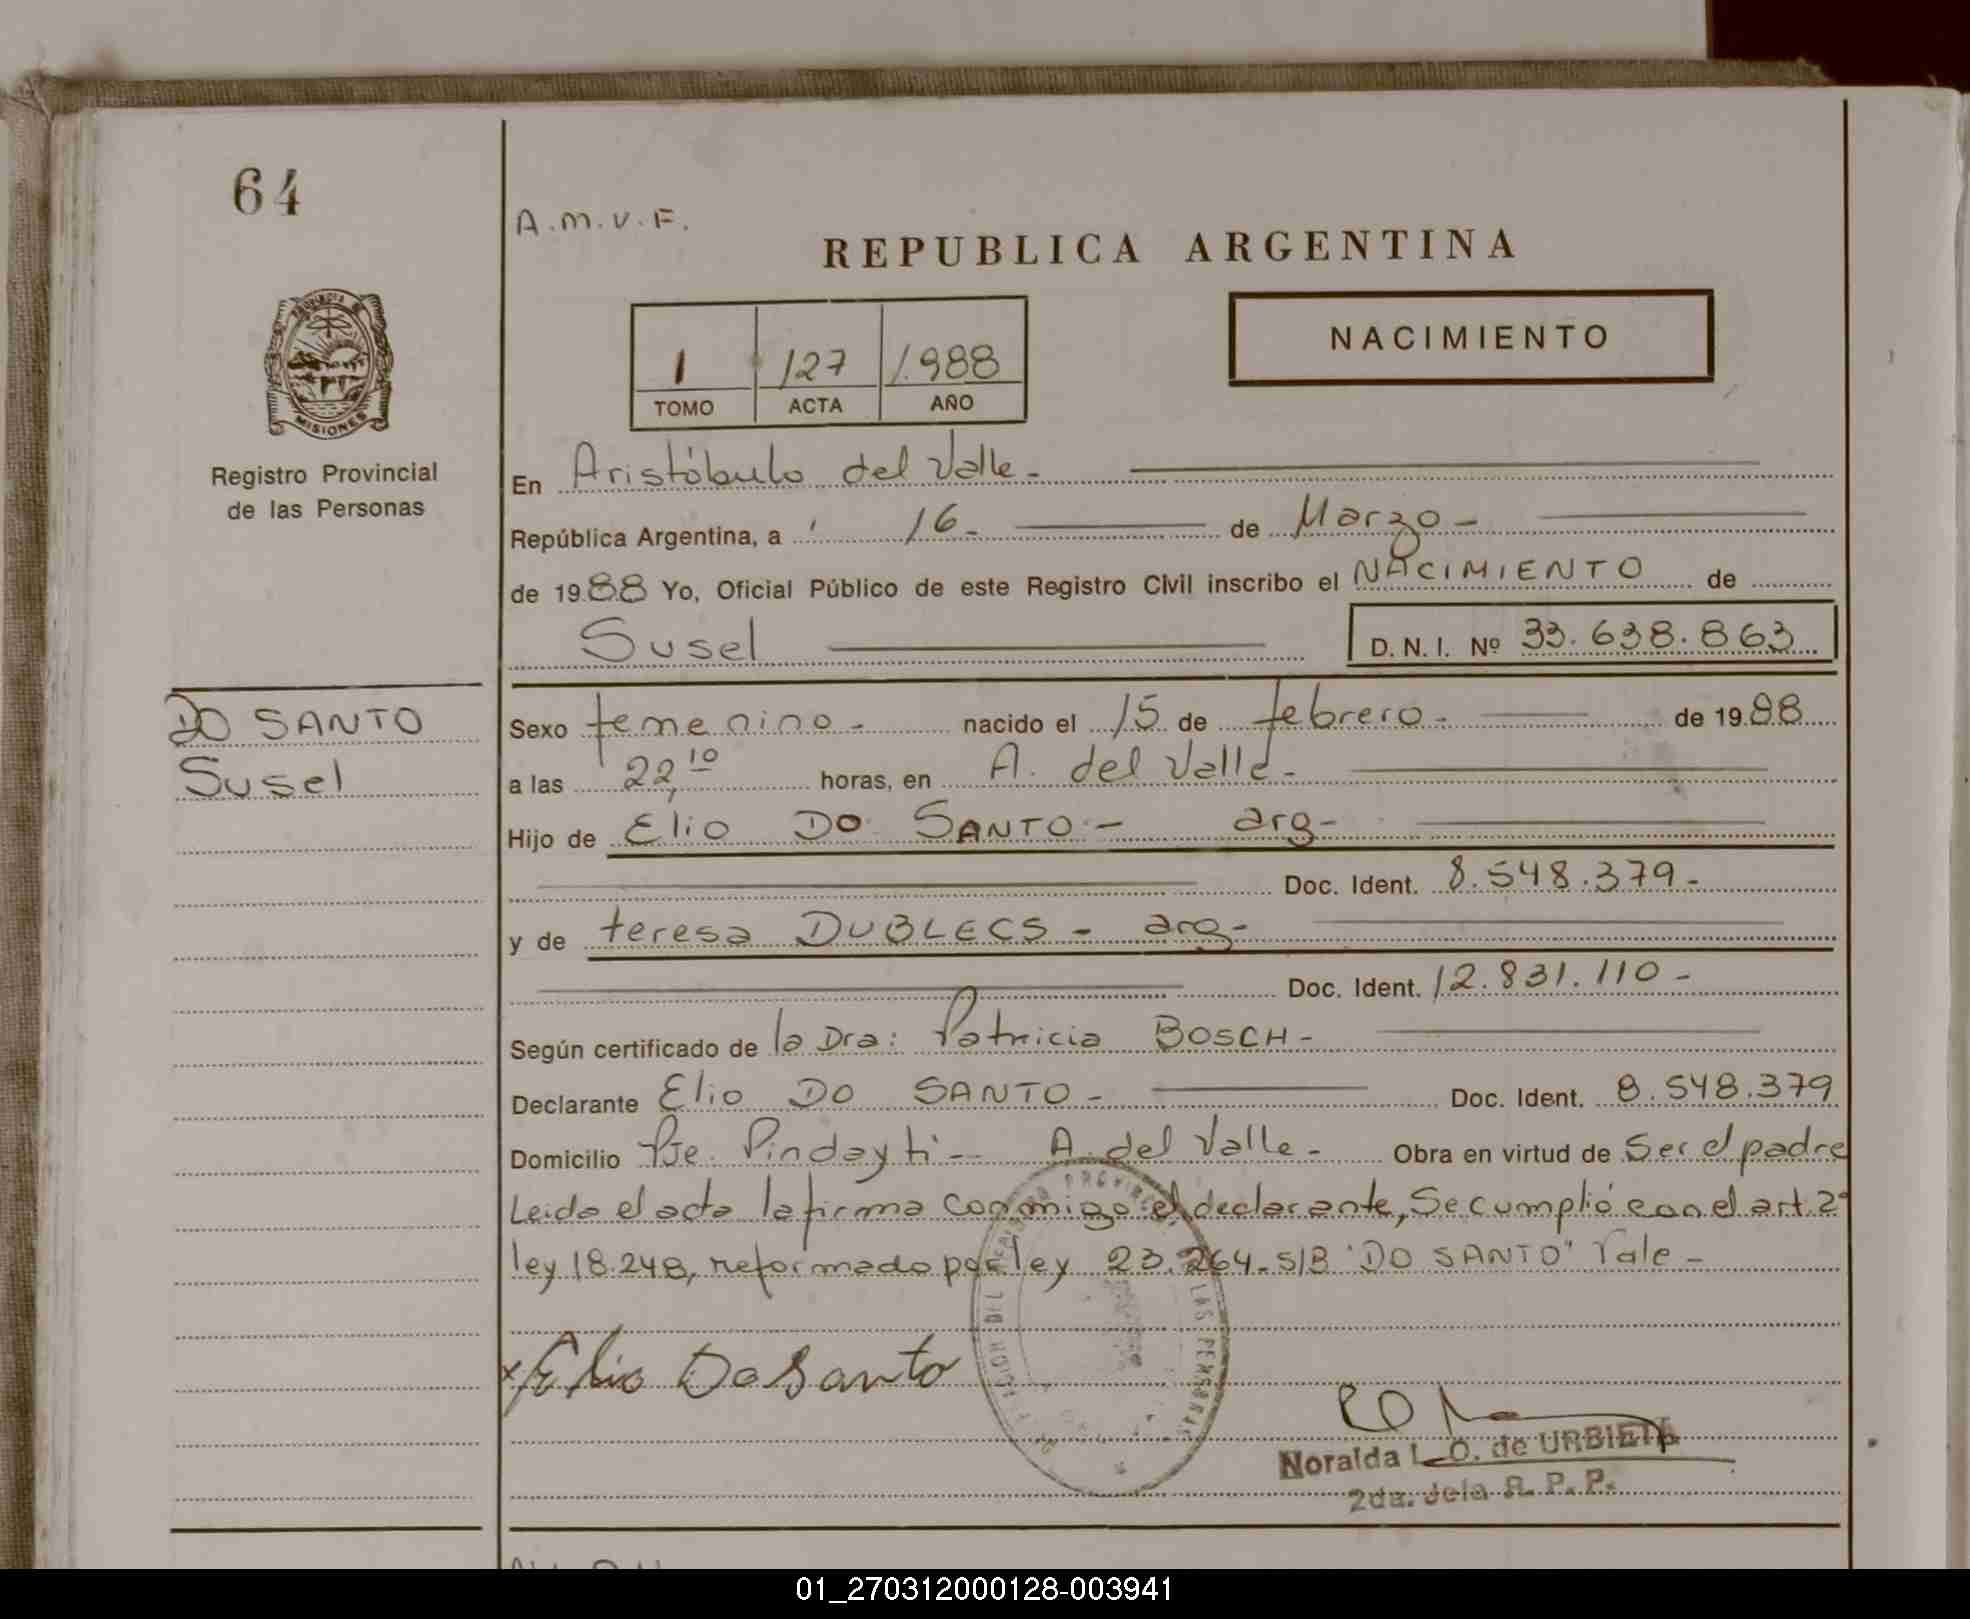 64
A.M.V.F.
REPUBLICA ARGENTINA
1 127 1.988
TOMO ACTA AÑO
NACIMIENTO
PROVINCIA DE
MISIONES
Registro Provincial
de las Personas
En Aristóbulo del Valle-
República Argentina, a 16- de Marzo-
de 1988 Yo, Oficial Público de este Registro Civil inscribo el NACIMIENTO de
Susel D.N.I. Nº 33.638.863
DO SANTO
Susel
Sexo femenino- nacido el 15 de febrero- de 1988
a las 22,10 horas, en A. del Valle-
Hijo de Elio DO SANTO- arg-
Doc. Ident. 8.548.379-
y de teresa DUBLECS- arg-
Doc. Ident. 12.831.110-
Según certificado de la Dra: Patricia BOSCH-
Declarante Elio DO SANTO- Doc. Ident. 8.548.379
Domicilio Pje. Pindayti- A. del Valle- Obra en virtud de Ser el padre
Leida el acta la firma conmigo el declarante, Se cumplió con el art. 2º
ley 18.248, reformado por ley 23.264- S/B "DO SANTO" Vale-
Elio Do Santo
DEL REGISTRO PROVINCIAL LAS PERSONAS
Noralda L. O. de URBIETA
2da. Jefa R. P. P.
01_270312000128-003941